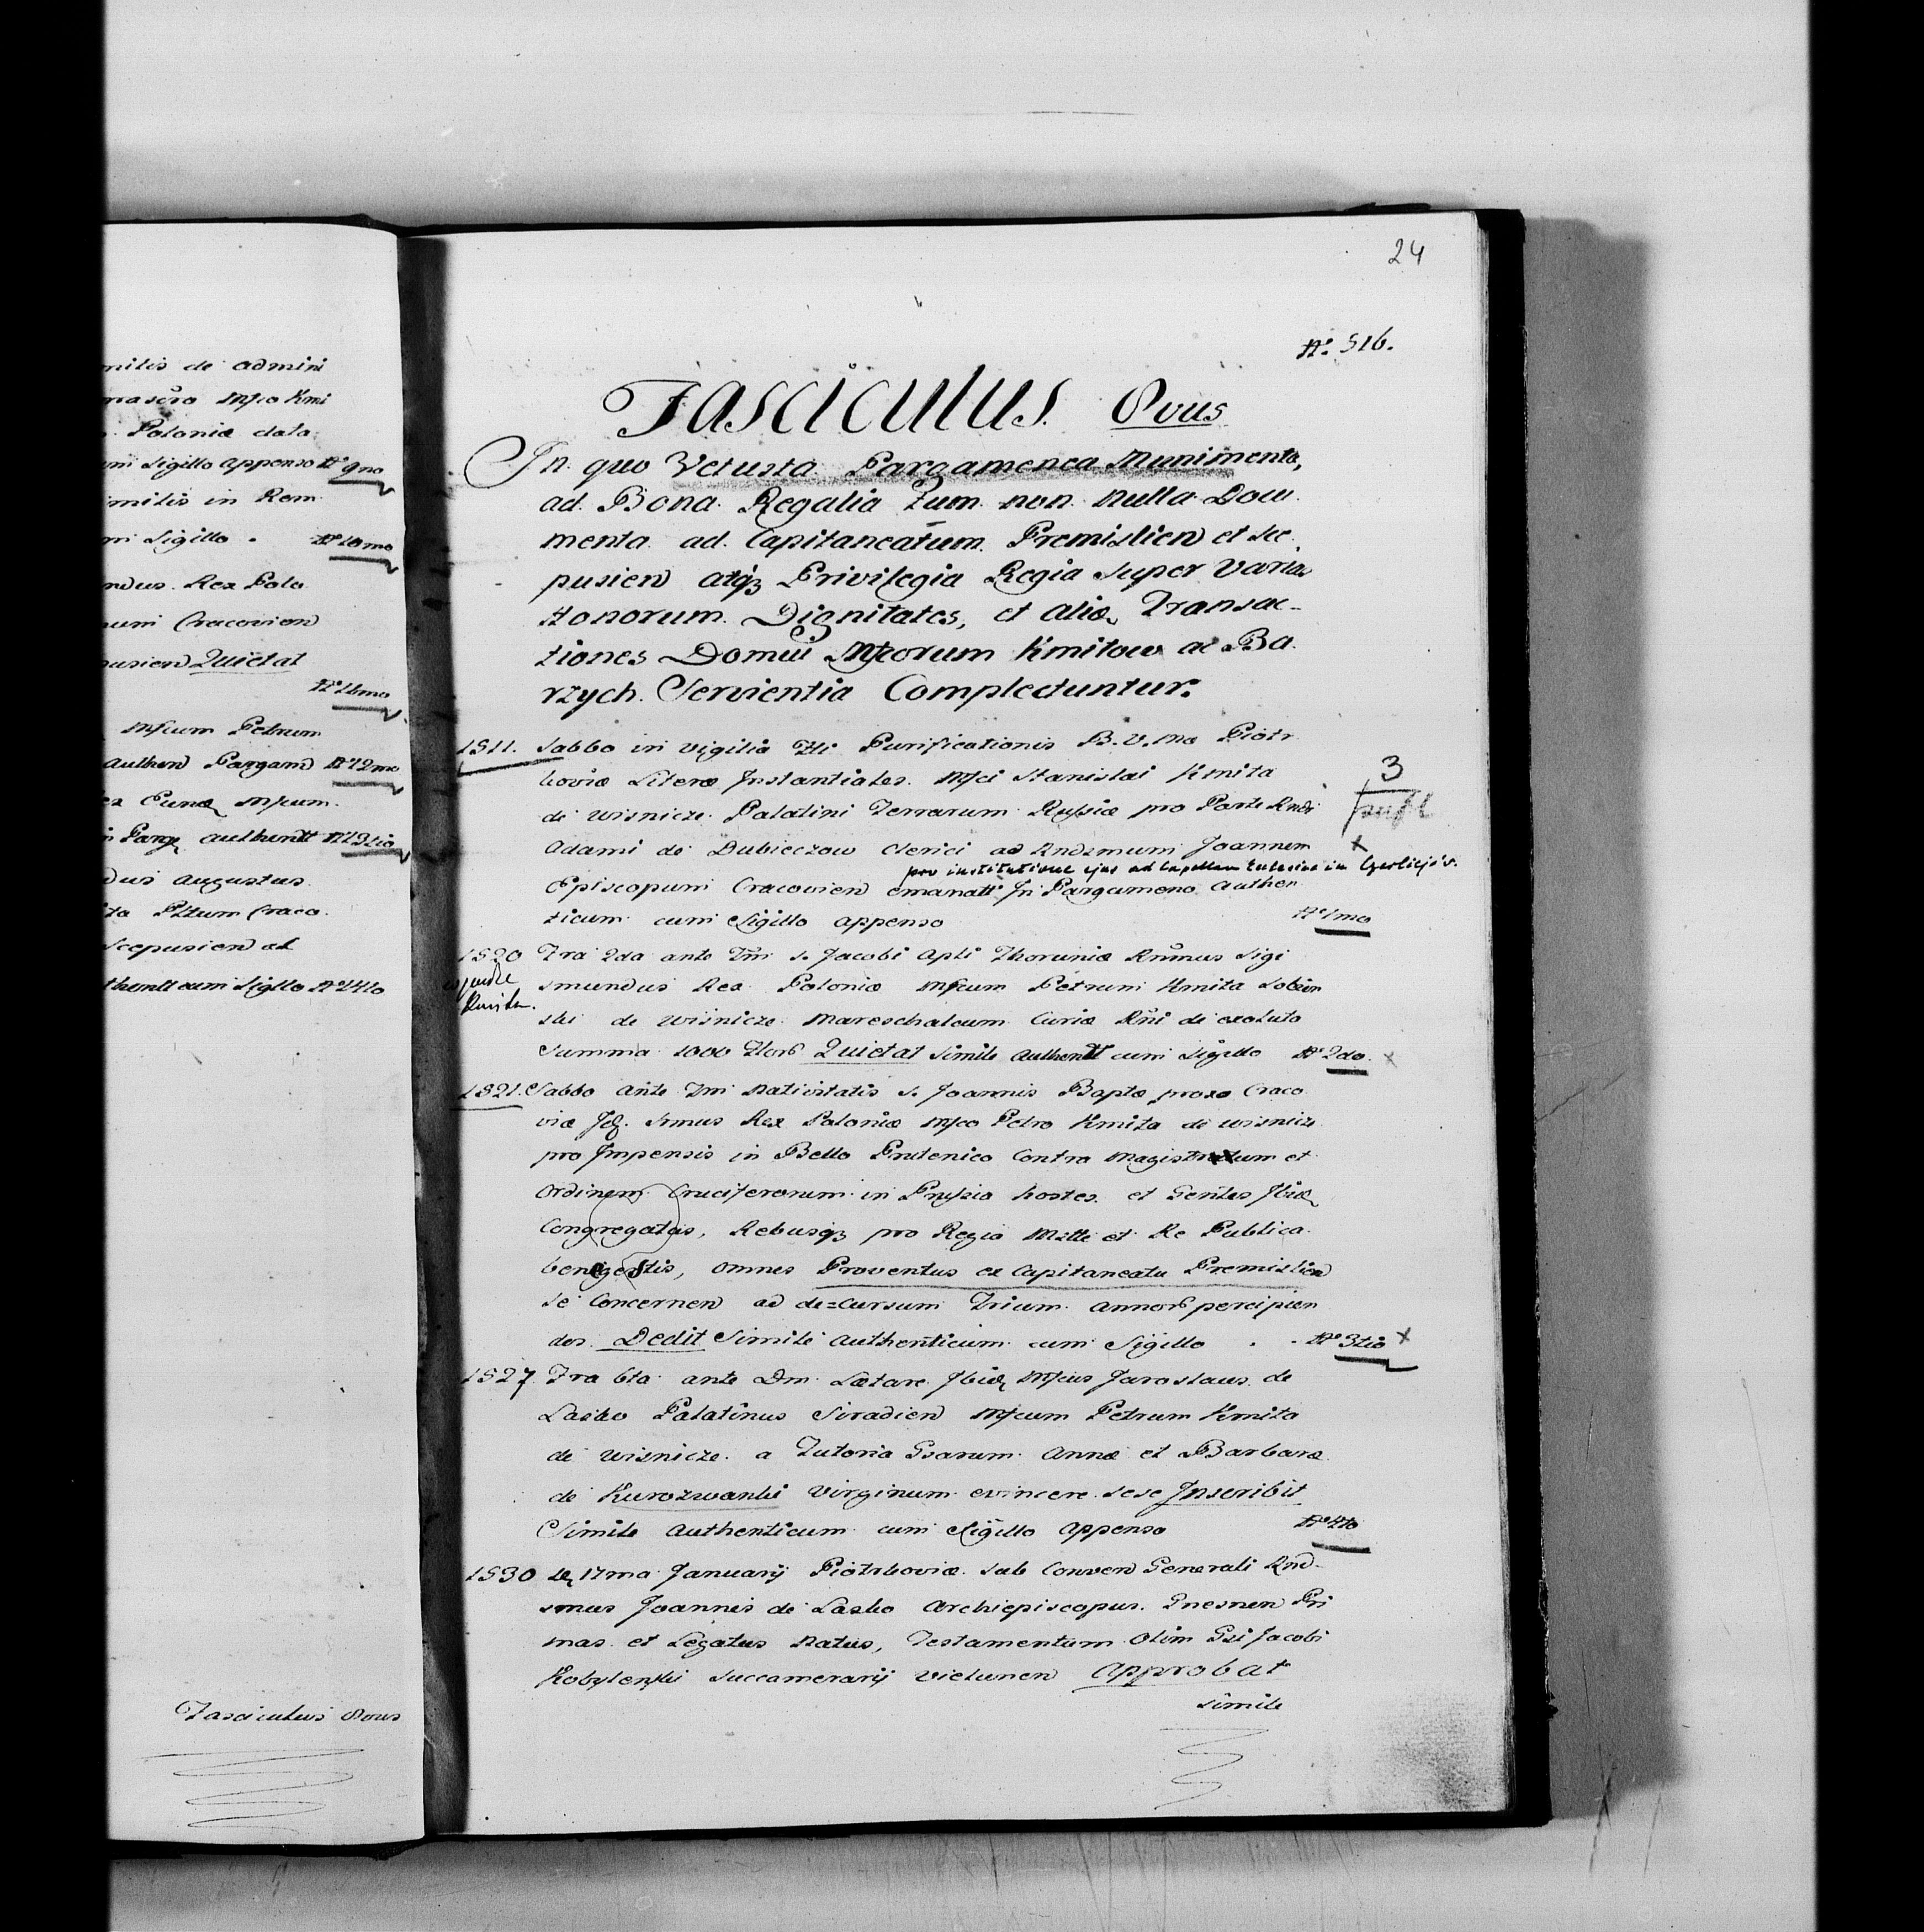 milis de admini
Mfco Kmi
Poloniæ data
Sigillo appenso No 9no
imilis in Rem
Sigillo . No 10mo
ndus Rex Polo
Cracovien
pusien Quietat
No 11mo
Mfcum Petrum
authen Pargam No 12mo
Mfcum.
authentt No 13tio
dus Augustus
ta Craco.
Scepusien ad
thentt cum Sigllo No 14to
Fasciculus 8vus
24
No. 516.
Fasciculus. 8vus
In quo Vetusta Pargamenea Munimenta,
ad. Bona. Regalia Tum non nulla Docu
menta ad. Capitaneatum. Premislien et Sce
pusien atq3 Privilegia Regia super Varias
Honorum. Dignitates, et aliæ Transac-
tiones Domui Mfcorum Kmitow ac Ba.
rzych. Servientia Complectuntur.
1511. Sabbo in vigilia Fti Purificationis B. V. Mæ Piotr
koviæ Literæ Instantiales. Mfci Stanislai Kmita
de Wisnicze Palatini Terrarum Russiæ pro Parte Rndi
3
Adami de Dubieczow Clerici ad Rndsmum Joannem
x
pro institutione ejus ad Capellam Ecclesiæ in
Episcopum Cracovien emanatt In Pargameno authen
ticum cum Sigillo appenso No 1mo
1520 Fra 2da ante Fm S. Jacobi Apli Thoruniæ Smus Sigi
smundus Rex Poloniæ Mfcum Petrum Kmita Sobien
ski de Wisnicze Mareschalcum Curiæ Rni de exoluto
Summa 1000 Flor Quietat simile authentt cum Sigillo No 2do. x
1521. Sabbo ante Fm Nativitatis S. Joannis Baptæ proxo Craco
viæ Idq. Smus Rex Poloniæ Mfco Petro Kmita de Wisnicze
pro Impensis in Bello Prutenico Contra Magistratum et
Ordinem Cruciferorum in Prussia hostes et Gentes Ibid
Congregatas, Rebusq3 pro Regia Mtte et Re Publica
bene gestis, omnes Proventus ex Capitaneatu Premislien
se Concernen ad de=cursum Trium annor percipien
dos. Dedit Simile authenticum cum Sigillo . . No 3tio x
1527. Fra 6ta ante Dm Lætare Ibid Mfcus Jaroslaus de
Lasko Palatinus Siradien Mfcum Petrum Kmita
de Wisnicze a Tutoria Gsarum Annæ et Barbaræ
de Kurozwanki Virginum evincere sese Inscribit
Simile authenticum cum Sigillo appenso No 4to
1530 17ma Januarij Piotrkoviæ sub Conven Generali Rnd
smus Joannes de Lasko Archiepiscopus. Gnesnen Pri
mas et Legatus Natus, Testamentum olim Gsi Jacobi
Kobylenski Succamerarij Vielunen Approbat
Simile